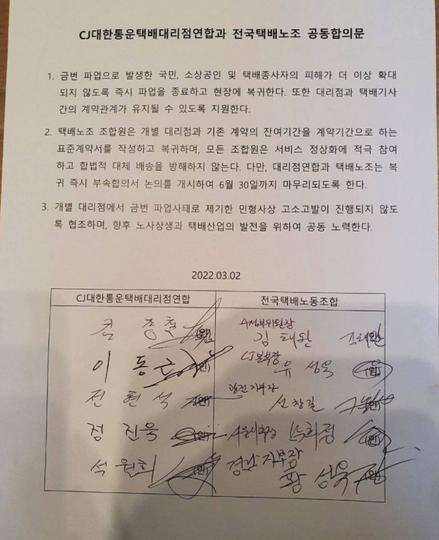 CJ대한통운택배대리점연합과 전국택배노조 공동합의문
1. 금번 파업으로 발생한 국민, 소상공인 및 택배종사자의 피해가 더 이상 확대
되지 않도록 즉시 파업을 종료하고 현장에 복귀한다. 또한 대리점과 택배기사
간의 계약관계가 유지될 수 있도록 지원한다.
2. 택배노조 조합원은 개별 대리점과 기존 계약의 잔여기간을 계약기간으로 하는
표준계약서를 작성하고 복귀하며, 모든 조합원은 서비스 정상화에 적극 참여
하고 합법적 대체 배송을 방해하지 않는다. 다만, 대리점연합과 택배노조는 복
귀 즉시 부속합의서 논의를 개시하여 6월 30일까지 마무리되도록 한다.
3. 개별 대리점에서 금번 파업사태로 제기한 민형사상 고소고발이 진행되지 않도
록 협조하며, 향후 노사상생과 택배산업의 발전을 위하여 공동 노력한다.
2022.03.02
CJ대한통운택배대리점연합 전국택배노동조합
김종철 (인) 김태완 (인)
이동 CJ본부장 유성욱 (인)
전현석 (인) 신창길
정진욱 (인)
석원희 (인) 경남지부장 황성욱